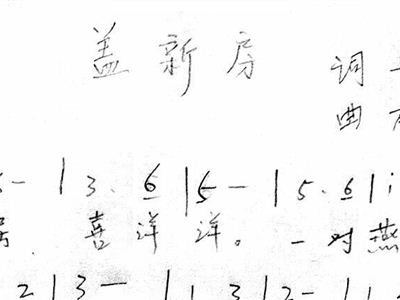 盖新房
词
曲
- | 3. 6 | 5 - | 5. 6 | i
喜洋洋。一对燕
2 | 3 - | 1. 3 | 2 - | 1